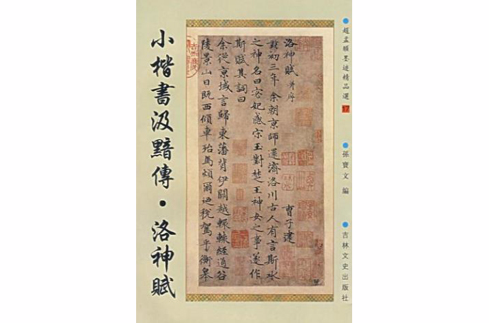 ●趙孟頫墨迹精品選
●孫寶文 編
●吉林文史出版社
洛神賦 并序
曹子建
黃初三年余朝京師還濟洛川古人有言斯水
之神名曰宓妃感宋玉對楚王神女之事遂作
斯賦其詞曰
余從京域言歸東藩背伊闕越轘轅經通谷
陵景山日既西傾車殆馬煩爾迺稅駕乎蘅皋
小楷書汲黯傳・洛神賦